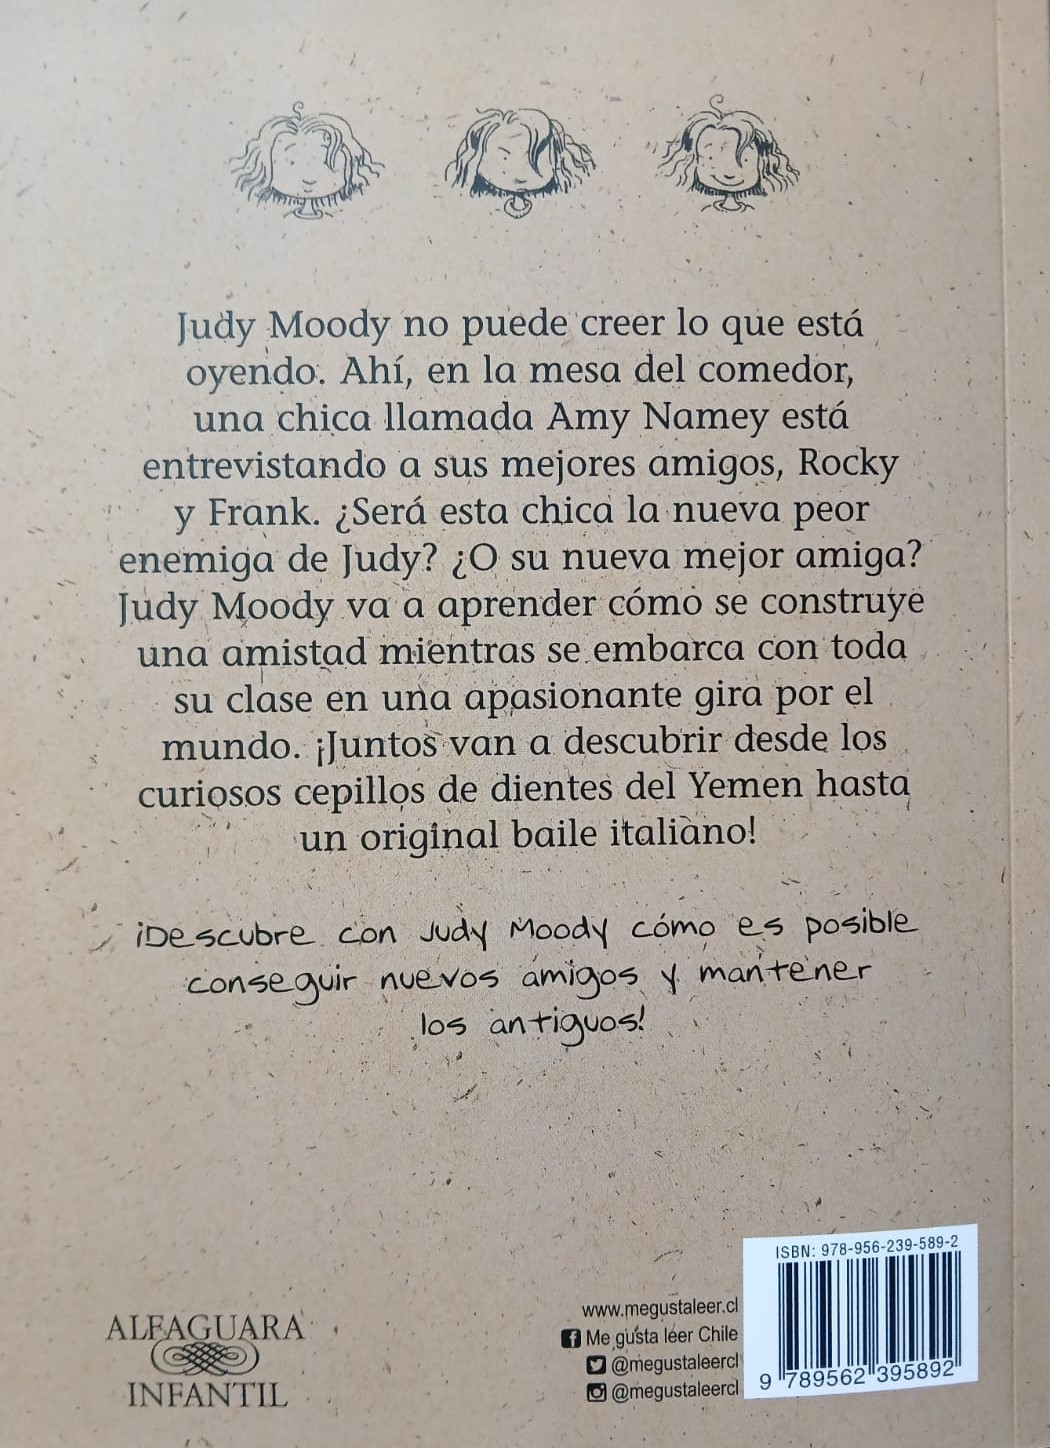 Judy Moody no puede creer lo que está
oyendo. Ahí, en la mesa del comedor,
una chica llamada Amy Namey está
entrevistando a sus mejores amigos, Rocky
y Frank. ¿Será esta chica la nueva peor
enemiga de Judy? ¿O su nueva mejor amiga?
Judy Moody va a aprender cómo se construye
una amistad mientras se embarca con toda
su clase en una apasionante gira por el
mundo. ¡Juntos van a descubrir desde los
curiosos cepillos de dientes del Yemen hasta
un original baile italiano!
¡Descubre con Judy Moody cómo es posible
conseguir nuevos amigos y mantener
los antiguos!
ALFAGUARA
INFANTIL
www.megustaleer.cl
Me gusta leer Chile
@megustaleercl
@megustaleercl
ISBN: 978-956-239-589-2
9 789562 395892